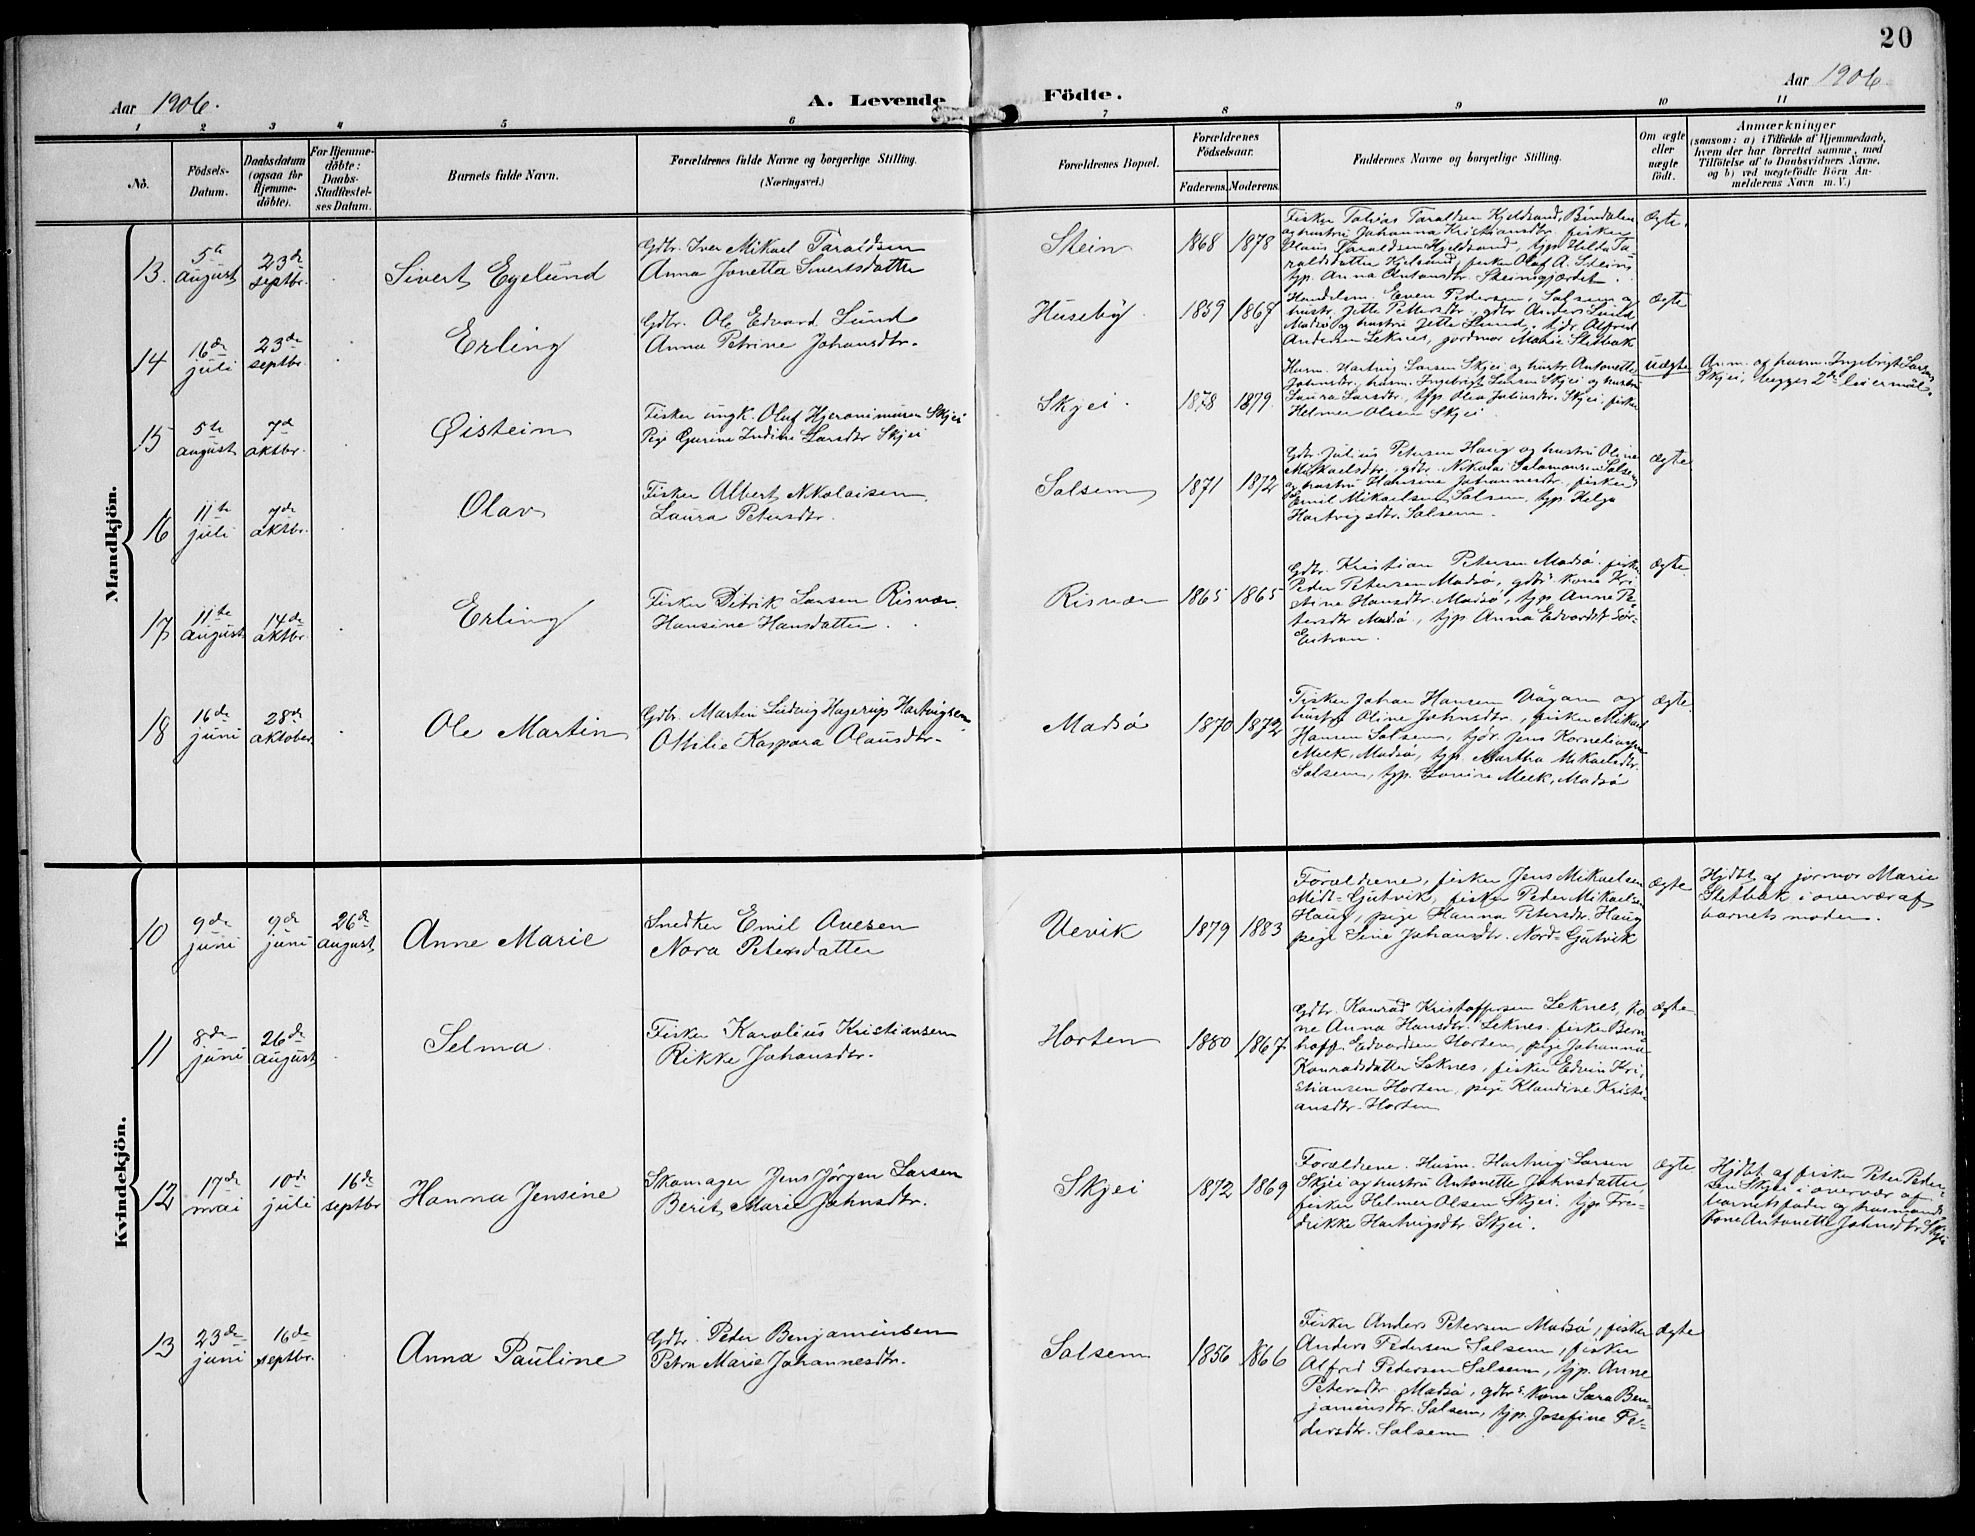 20
Aar 1906.
A. Levende Födte.
Aar 1906
1 2 3 4 5 6 7 8 9 10 11
No.
Födsels-
Datum.
Daabsdatum
(ogsaa for
Hjemme-
döbte).
For Hjemme-
döbte:
Daabs-
Stadfæstel-
ses Datum.
Barnets fulde Navn.
Forældrenes fulde Navne og borgerlige Stilling.
(Næringsvei.)
Forældrenes Bopæl.
Forældrenes
Födselsaar.
Faderens. Moderens.
Faddernes Navne og borgerlige Stilling.
Om ægte
eller
uægte
födt.
Anmærkninger
(saasom: a) i Tilfælde af Hjemmedaab,
hvem der har forrettet samme, med
Tilföielse af to Daabsvidners Navne,
og b) ved uægtefödte Börn An-
melderens Navn m. V.)
Mandkjön.
13. 5te august 23de septbr.
Sivert Egelund
Gdbr. Iver Mikael Taraldsen
Anna Jonetta Sivertsdatter
Stein 1868 1878
Fisker Tobias Taraldsen Kjeldsand, Bindalen
og hustru Johanna Kristiansdtr. fisker
Klaus Taraldsen Hjeldsand, tjp. Hilda Ta-
raldsdatter Kjelsand, fisker Olaf A. Stein,
tjp. Anna Antonsdtr. Steinsgjærdet.
ægte.
14 16de juli 23de septbr.
Erling
Gdbr. Ole Edvard Lund
Anna Petrine Johansdtr.
Huseby. 1859 1868
Handelsm. Even Pedersen, Salsem og
hustr. Jette Pettersdtr., gdbr. Anders Lund
Madsø og hustru Jette Lund, tjdr. Alfred
Andersen Leknes, jordmor Marie Sletbak
ægte
15 5te august 7de oktbr.
Øistein
Fisker ungk. Oluf Hjeronimusen Skjei
Pige Gurine Indine Larsdtr Skjei
Skjei. 1878 1879
Husm. Hartvig Larsen Skjei og hustr. Antonette
Johnsdtr., husm. Ingebrigt Larsen Skjei og hustru
Laura Larsdtr., tjp. Olea Juliusdtr. Skjei, fisker
Helmer Olsen Skjei.
uægte
An.m. og husm. Ingebrigt Larsen
Skjei, begges 2det leiermål.
16 11te juli 7de oktbr.
Olav
Fisker Albert Nikolaisen
Laura Petersdtr.
Salsem 1871 1872
Gdbr. Julius Petersen Haug og hustru Oline
Mikkaelsdtr., gdbr. Nikolai Salamonsen Salsem
og hustru Hansine Johannesdtr. fisker
Emil Mikaelsen Salsem, tjp. Helga
Hartvigsdtr. Salsem.
ægte
17 11te august 14de oktbr.
Erling
Fisker Ditrik Larsen Risvær.
Hansine Hansdatter.
Risvær 1865 1865
Gdbr. Kristian Petersen Madsø. fisker
Peder Petersen Madsø, gdbr.s kone Kri-
stine Hansdtr. Madsø, tjp. Anne Pe-
tersdtr Madsø, tjp. Anna Edvardsdtr Sör-
Eitran.
ægte.
18 16de juni 28de oktober.
Ole Martin
Gdbr. Martin Ludvig Hagerup Hartvigsen
Ottilie Kaspara Olausdtr.
Madsø 1870 1872
Fisker Johan Hansen Vågan og
hustr Oline Johnsdtr., fisker Mikael
Hansen Salsem, tjdr. Jens Korneliussen
Meek, Madsø, tjp. Martha Mikaelsdtr.
Salsem, tjp. Lovise Meek, Madsø
ægte.
Kvindekjön.
10 9de juni 9de juni 26de august
Anne Marie
Snedker Emil Avesen
Nora Petersdatter
Uevik 1879 1883
Forældrene, fisker Jens Mikaelsen
Midt-Gutvik, fisker Peder Mikaelsen
Haug, pige Hanna Petersdtr. Haug
pige Sine Johansdtr. Nord-Gutvik
ægte
Hjdbt. af jormor Marie
Sletbak i overvær af
barnets moder.
11 8de juni 26de august
Selma
Fisker Karolius Kristiansen
Rikke Johansdtr.
Horten 1880 1867
Gdbr. Konrad Kristoffersen Leknes, ko-
ne Anna Hansdtr. Leknes. fisker Bern-
hoff Edvardsen Horten, pige Johanna
Konradsdatter Leknes, fisker Edvin Kri-
stiansen Horten, pige Klaudine Kristi-
ansdtr. Horten
ægte
12 17de mai 10de juli 16de septbr
Hanna Jensine
Skomager Jens Jørgen Larsen
Berit Marie Johnsdtr.
Skjei 1872 1869
Forældrene. Husm. Hartvig Larsen
Skjei og hustru Antonette Johnsdatter,
fisker Helmer Olsen Skjei. tjp. Fre-
drikke Hartvigsdtr. Skjei.
ægte
Hjdbt. af fisker Peter Peder-
sen Skjei i overvær af
barnets fader og husmands-
kone Antonette Johnsdtr. Skjei
13 23de juni 16de septbr.
Anna Pauline
Gdbr. Peder Benjaminsen
Petra Marie Johannesdtr.
Salsem 1856 1866
Fisker Anders Petersen Madsø, fisker
Anders Pedersen Salsem, fisker
Alfred Pedersen Salsem, tjp. Anne
Petersdtr Madsø, gdbr.s kone Sara Ben-
jaminsdtr. Salsem, tjp. Josefine Pe-
dersdtr. Salsem.
ægte